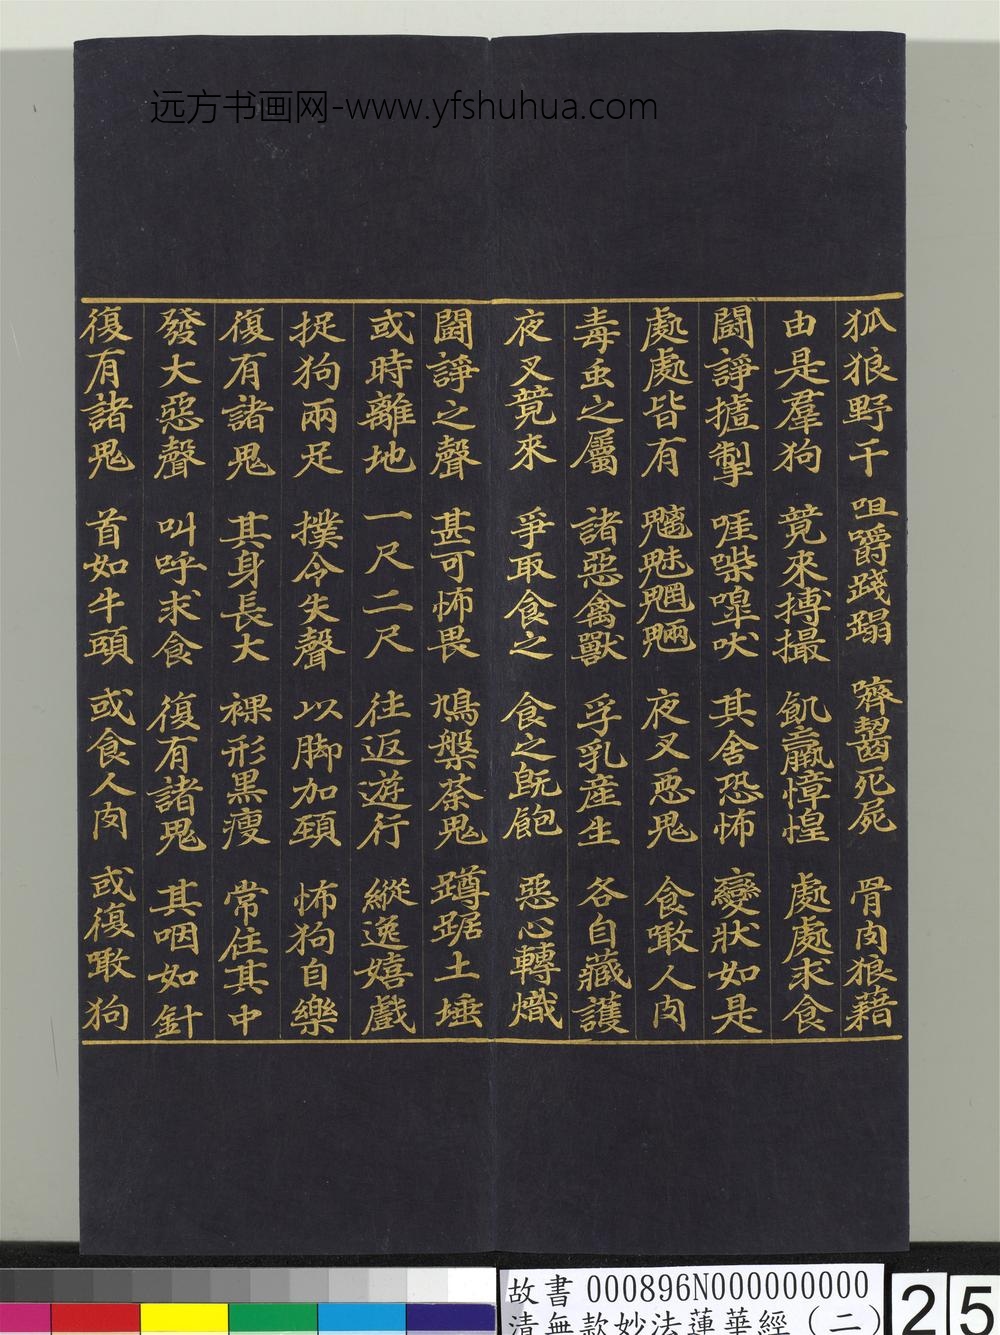 远方书画网-www.yfshuhua.com
狐狼野干 咀嚼踐蹋 嚌齧死屍 骨肉狼藉
由是羣狗 競來搏撮 飢羸慞惶 處處求食
鬪諍摣掣 啀喍嘷吠 其舍恐怖 變狀如是
處處皆有 魑魅魍魎 夜叉惡鬼 食噉人肉
毒虫之屬 諸惡禽獸 孚乳產生 各自藏護
夜叉競來 爭取食之 食之既飽 惡心轉熾
鬪諍之聲 甚可怖畏 鳩槃荼鬼 蹲踞土埵
或時離地 一尺二尺 往返遊行 縱逸嬉戲
捉狗兩足 撲令失聲 以脚加頸 怖狗自樂
復有諸鬼 其身長大 裸形黑瘦 常住其中
發大惡聲 叫呼求食 復有諸鬼 其咽如針
復有諸鬼 首如牛頭 或食人肉 或復噉狗
故書 000896N000000000
清無款妙法蓮華經（二）
25